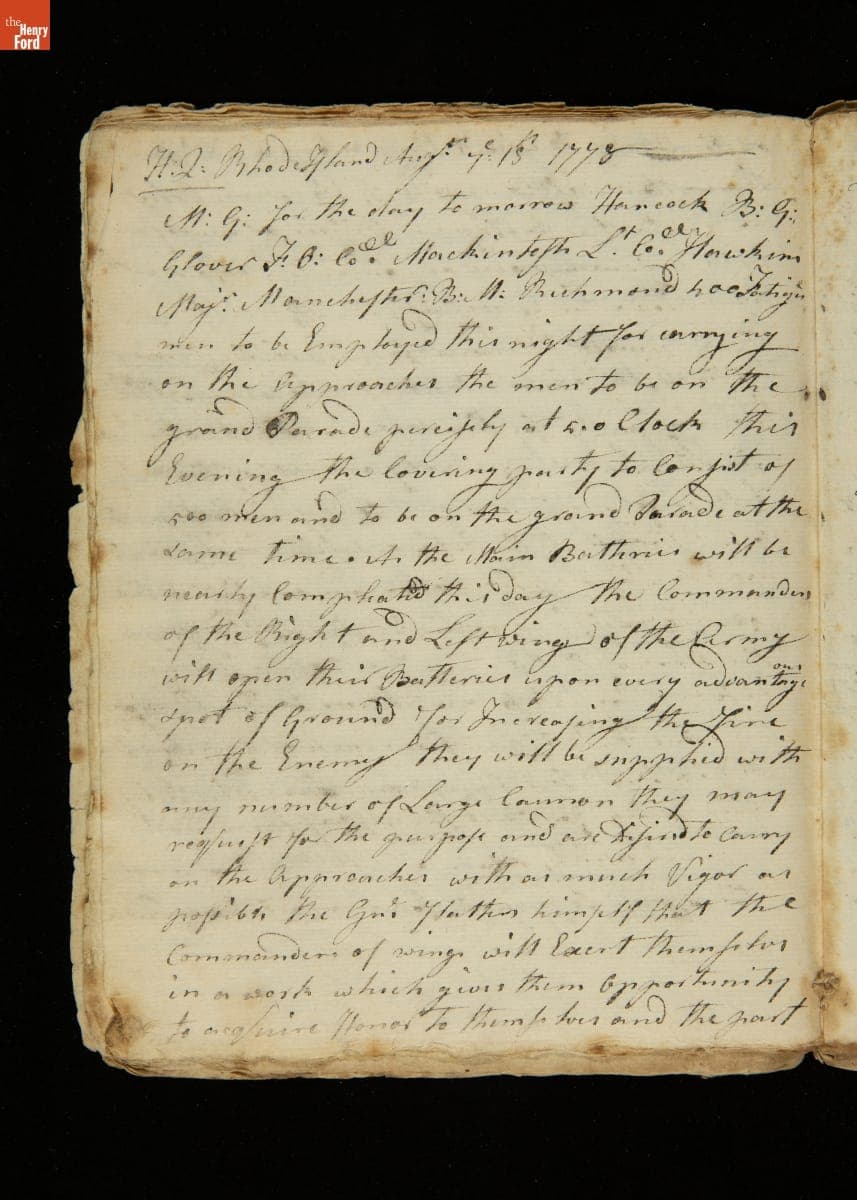 the Henry Ford
H: Q: Rhode Island Augst ye 18th 1778
M: G: for the day to morrow Hancock B: G:
Glover F: O: Coll Mackintosh Lt Coll Hawkins
Majr Manchester: B: M: Richmond 400 Fatigue
men to be Employed this night for carrying
on the Approaches the men to be on the
grand Parade percisely at 5. o Clock this
Evening the Covering party to Consist of
500 men and to be on the grand Parade at the
same time. As the Main Batteries will be
nearly Compleated this day the Commanders
of the Right and Left wings of the Army
will open their Batteries upon every advantageous
spot of Ground for Increasing the Fire
on the Enemy they will be supplied with
any number of Large Cannon they may
request for the purpose and are desired to Carry
on the Approaches with as much Vigor as
possible the Gnl flatters himself that the
Commanders of wings will Exert themselves
in a work which gives them Opportunity
to acquire Honor to themselves and the part